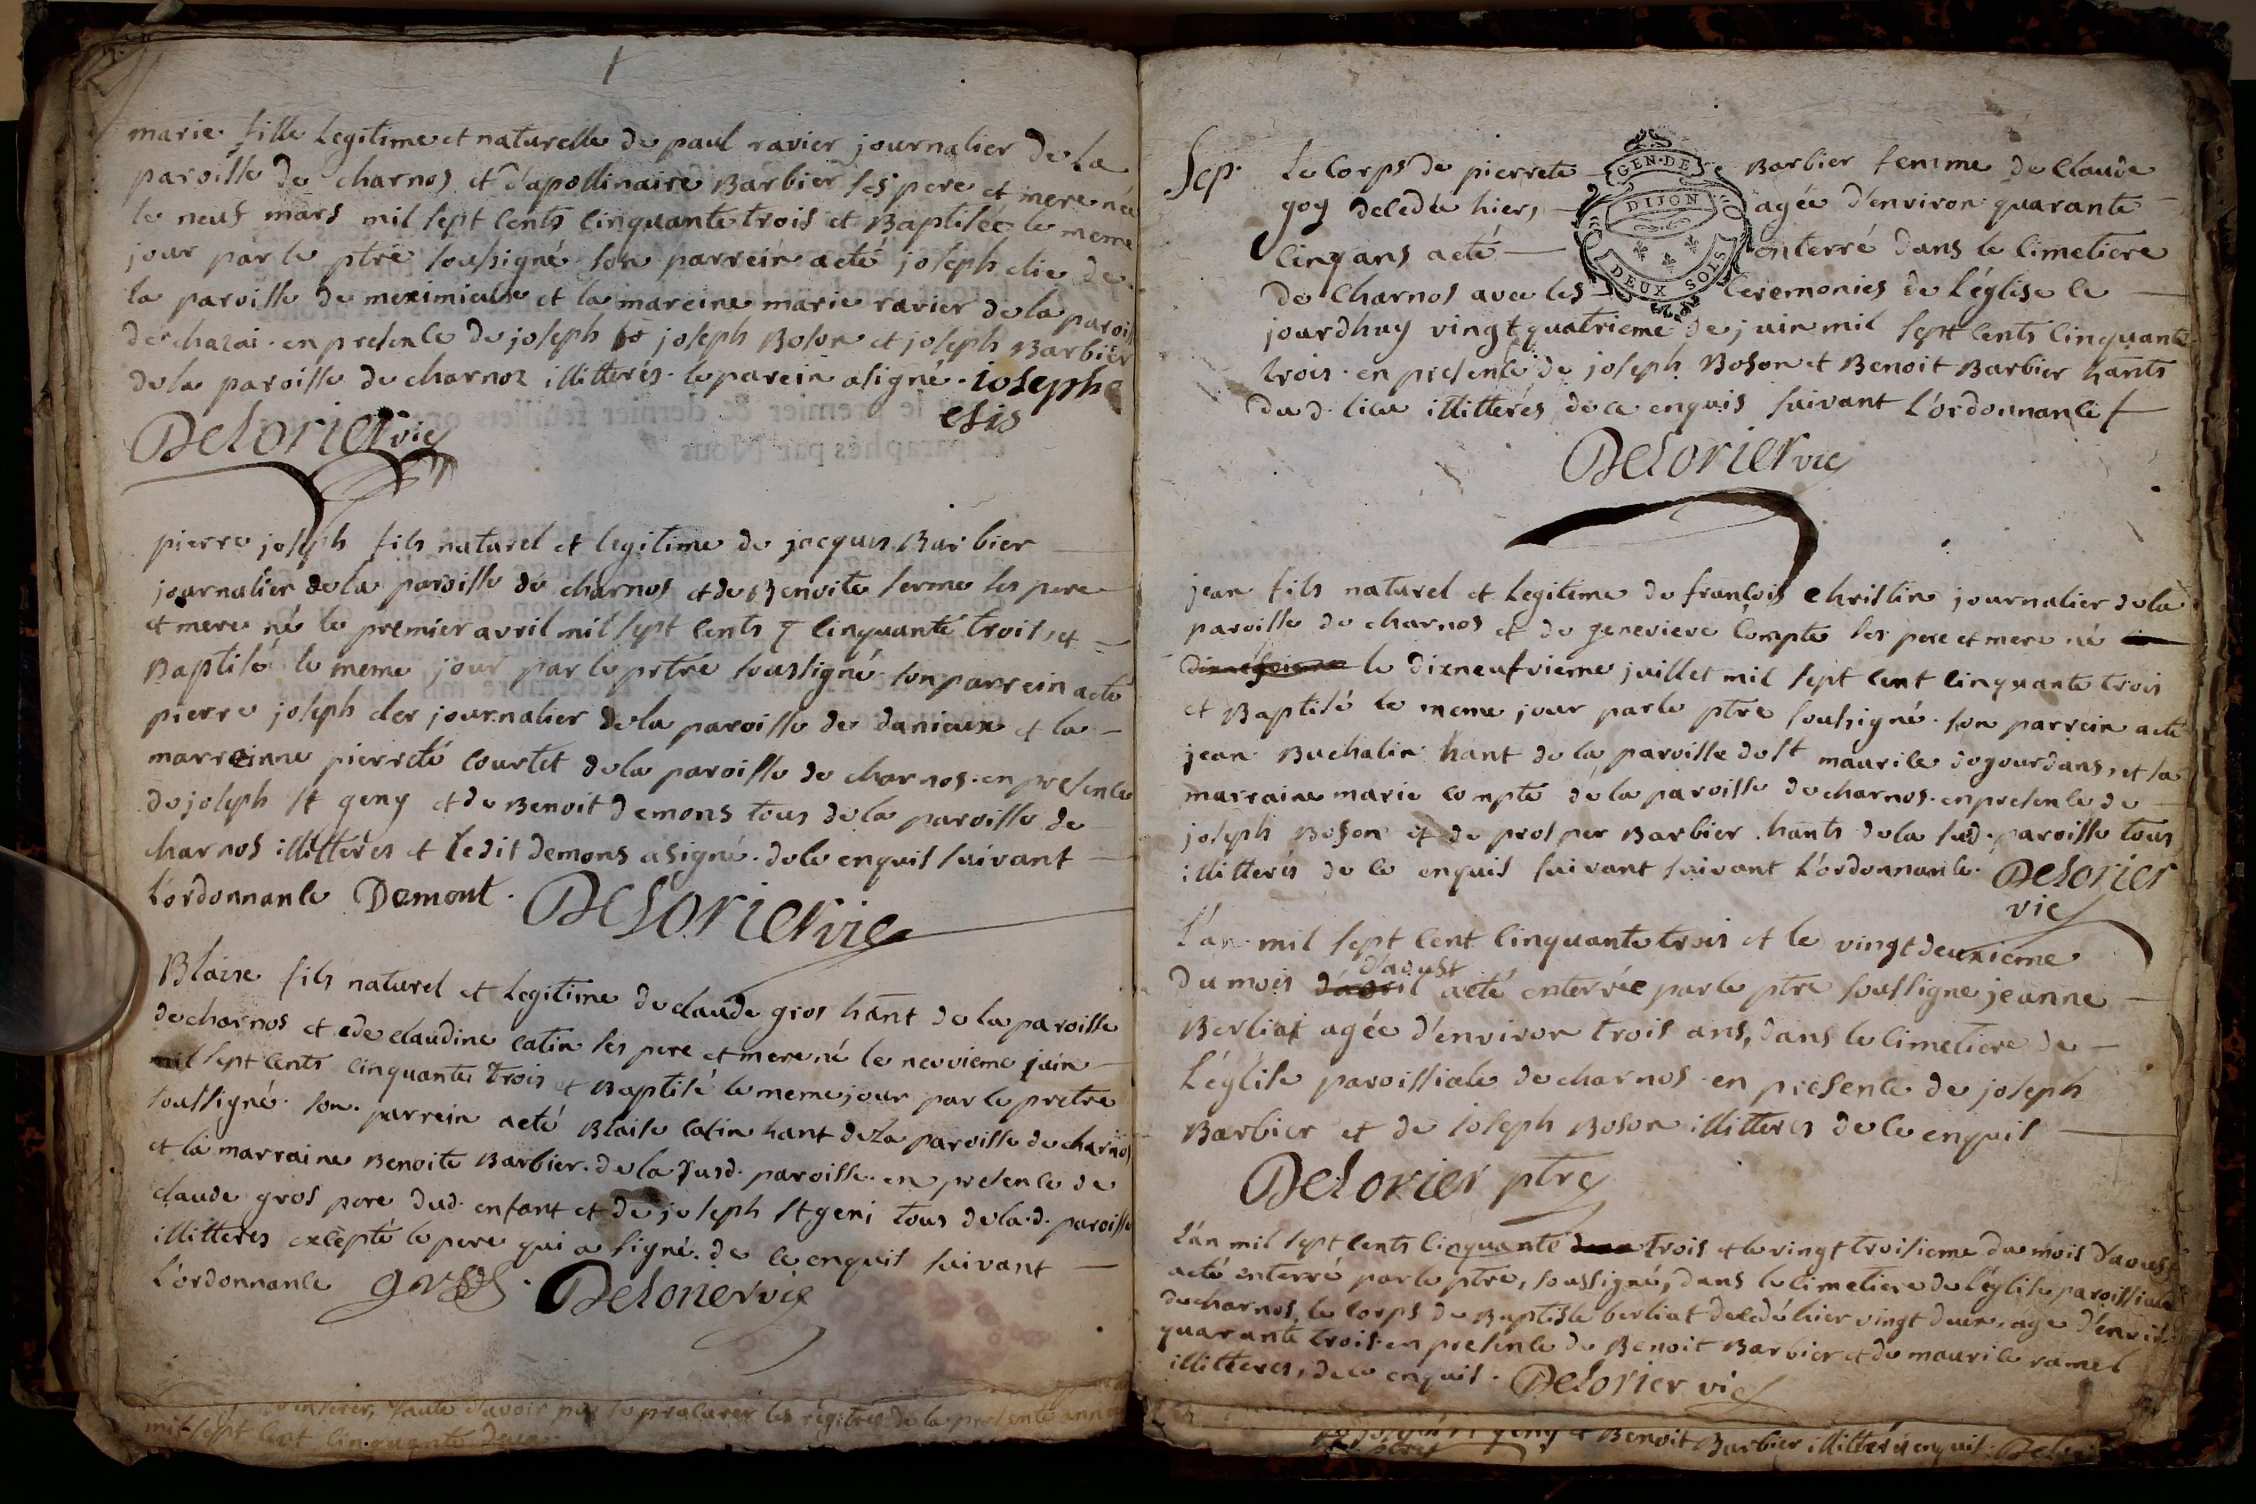 marie fille Legitime et naturelle de paul ravier journalier de La
paroisse de charnos et d'apollinaire Barbier ses pere et mere née
le neuf mars mil sept cents cinquante trois et Baptisée le meme
jour par le ptre soussigné son parrein a eté joseph elie de
la paroisse de meximieux et la mareine marie ravier de la
de chazai. en presence de joseph joseph Boson et joseph Barbier
de la paroisse de charnoz illitterés. le parein a signé. iosephe
Delorier vic
pierre joseph fils naturel et legitime de jacques Barbier
journalier de la paroisse de charnos et de Benoite ses pere
et mere né le premier avril mil sept cents cinquante trois, et
Baptisé le meme jour par le prtre soussigné son parrein a eté
pierre joseph journalier de la paroisse de et la
marreinne pierreté courtet de la paroisse de charnos. en presence
de joseph st geny et de Benoit demons tous de la paroisse de
charnos illitterés et ledit demons a signé. de ce enquis suivant
L'ordonnance Demont. Delorier vic
Blaise fils naturel et Legitime de claude gros hant de la paroisse
de charnos et de claudine catin ses pere et mere né le neuvieme juin
mil sept cents cinquante trois et Baptisé le meme jour par le pretre
soussigné. son parrein a eté Blaise catin hant de la paroisse de charnos
et la marraine Benoite Barbier. de la susd. paroisse. en presence de
claude gros pere dud. enfant et de joseph st geni tous de la d. paroisse
illitterés excepté le pere qui a signé. de ce enquis suivant
L'ordonnance gros. Delorier vic
inserer, faute d'avoir pu se procurer les registres de la presente
mil sept cent cinquante deux
Sep. Le Corps de pierrete Barbier femme de Claude
goy decedée hier, agée d'environ quarante
cinq ans a eté enterré dans le cimetiere
de Charnos avec les Ceremonies de L'église ce
jourdhuy vingt quatrieme de juin mil sept cents cinquante
trois. en presence de joseph Boson et Benoit Barbier hants
dud. lieu illitterés de ce enquis suivant L'ordonnance
GEN. DE
DIJON
DEUX SOLS
Delorier vic
jean fils naturel et Legitime de françois christin journalier de la
paroisse de charnos et de genevieve compte ses pere et mere né
le dizneufvieme juillet mil sept cent cinquante trois
et Baptisé le meme jour par le ptre soussigné. son parrein a eté
jean Buchalin hant de la paroisse de st maurice de gourdans, et la
marraine marie compte de la paroisse de charnos. en presence de
joseph Boson et de prosper Barbier. hants de la sud. paroisse tous
illitterés de ce enquis suivant suivant L'ordonnance. Delorier
vic
L'an mil sept cent cinquante trois et le vingt deuxieme
du mois d'avril d'aoust a eté enterrée par le ptre soussigné jeanne
Berliat agée d'environ trois ans, dans le cimetiere de
L'église paroissiale de charnos en presence de joseph
Barbier et de joseph Boson illitterés de ce enquis
Delorier ptre
L'an mil sept cents cinquante trois et le vingt troisieme du mois d'aoust
a eté enterré par le ptre, soussigné, dans le cimetiere de l'église paroissiale
de charnos, le corps de Baptiste berliat decedé hier vingt deux, agé
quarante trois. en presence de Benoit Barbier et de maurice ramel
illitterés, de ce enquis. Delorier vic
geny et Benoit Barbier illitterés enquis.